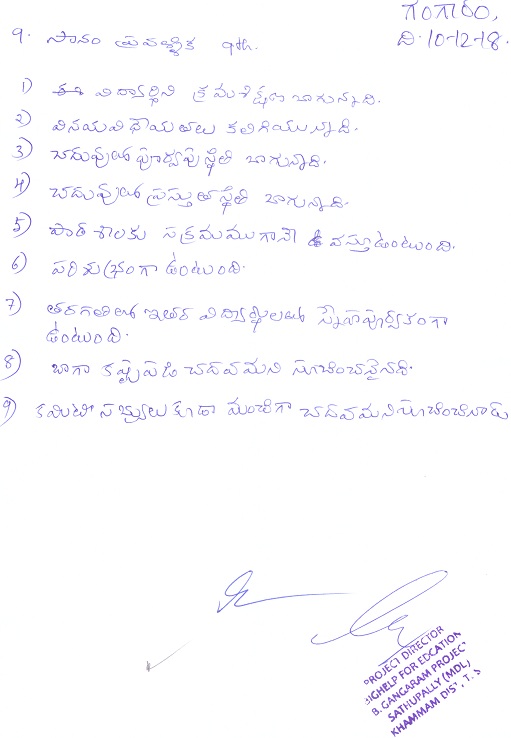 గంగారం,
ది. 10-12-18.
9. సానం ప్రవళ్ళిక 9th.
1) ఈ విద్యార్థిని క్రమశిక్షణ బాగున్నాది.
2) వినయవిధేయతలు కలిగియున్నాది.
3) చదువులో పూర్వపు స్థితి బాగున్నాది.
4) చదువులో ప్రస్తుత స్థితి బాగున్నాది.
5) పాఠశాలకు సక్రమముగానే వస్తూ ఉంటుంది.
6) పరిశుభ్రంగా ఉంటుంది.
7) తరగతిలో ఇతర విద్యార్థులతో స్నేహపూర్వకంగా
ఉంటుంది.
8) బాగా కష్టపడి చదవమని సూచించనైనది.
9) కమిటీ సభ్యులు కూడా మంచిగా చదవమని సూచించినారు
PROJECT DIRECTOR
BIGHELP FOR EDCATION
B. GANGARAM PROJEC
SATHUPALLY (MDL)
KHAMMAM DIS', T.S